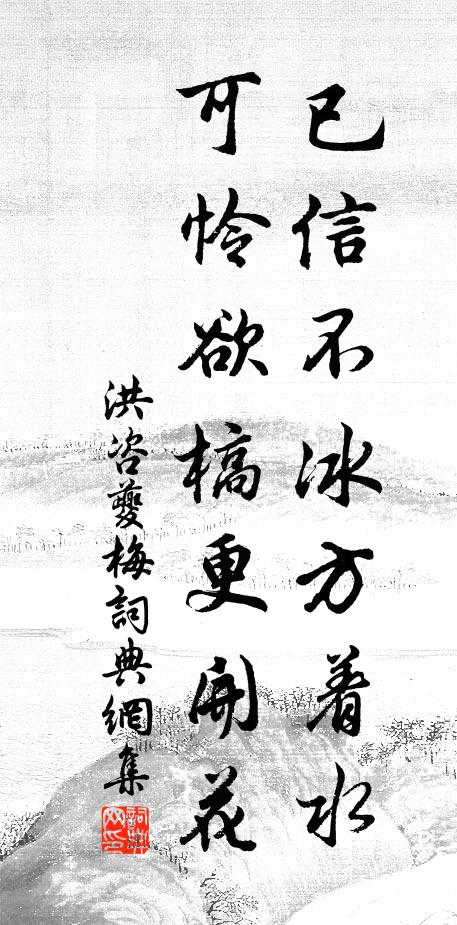 已信不冰方着水
可怜欲槁更開花
洪咨夔梅詞典網集